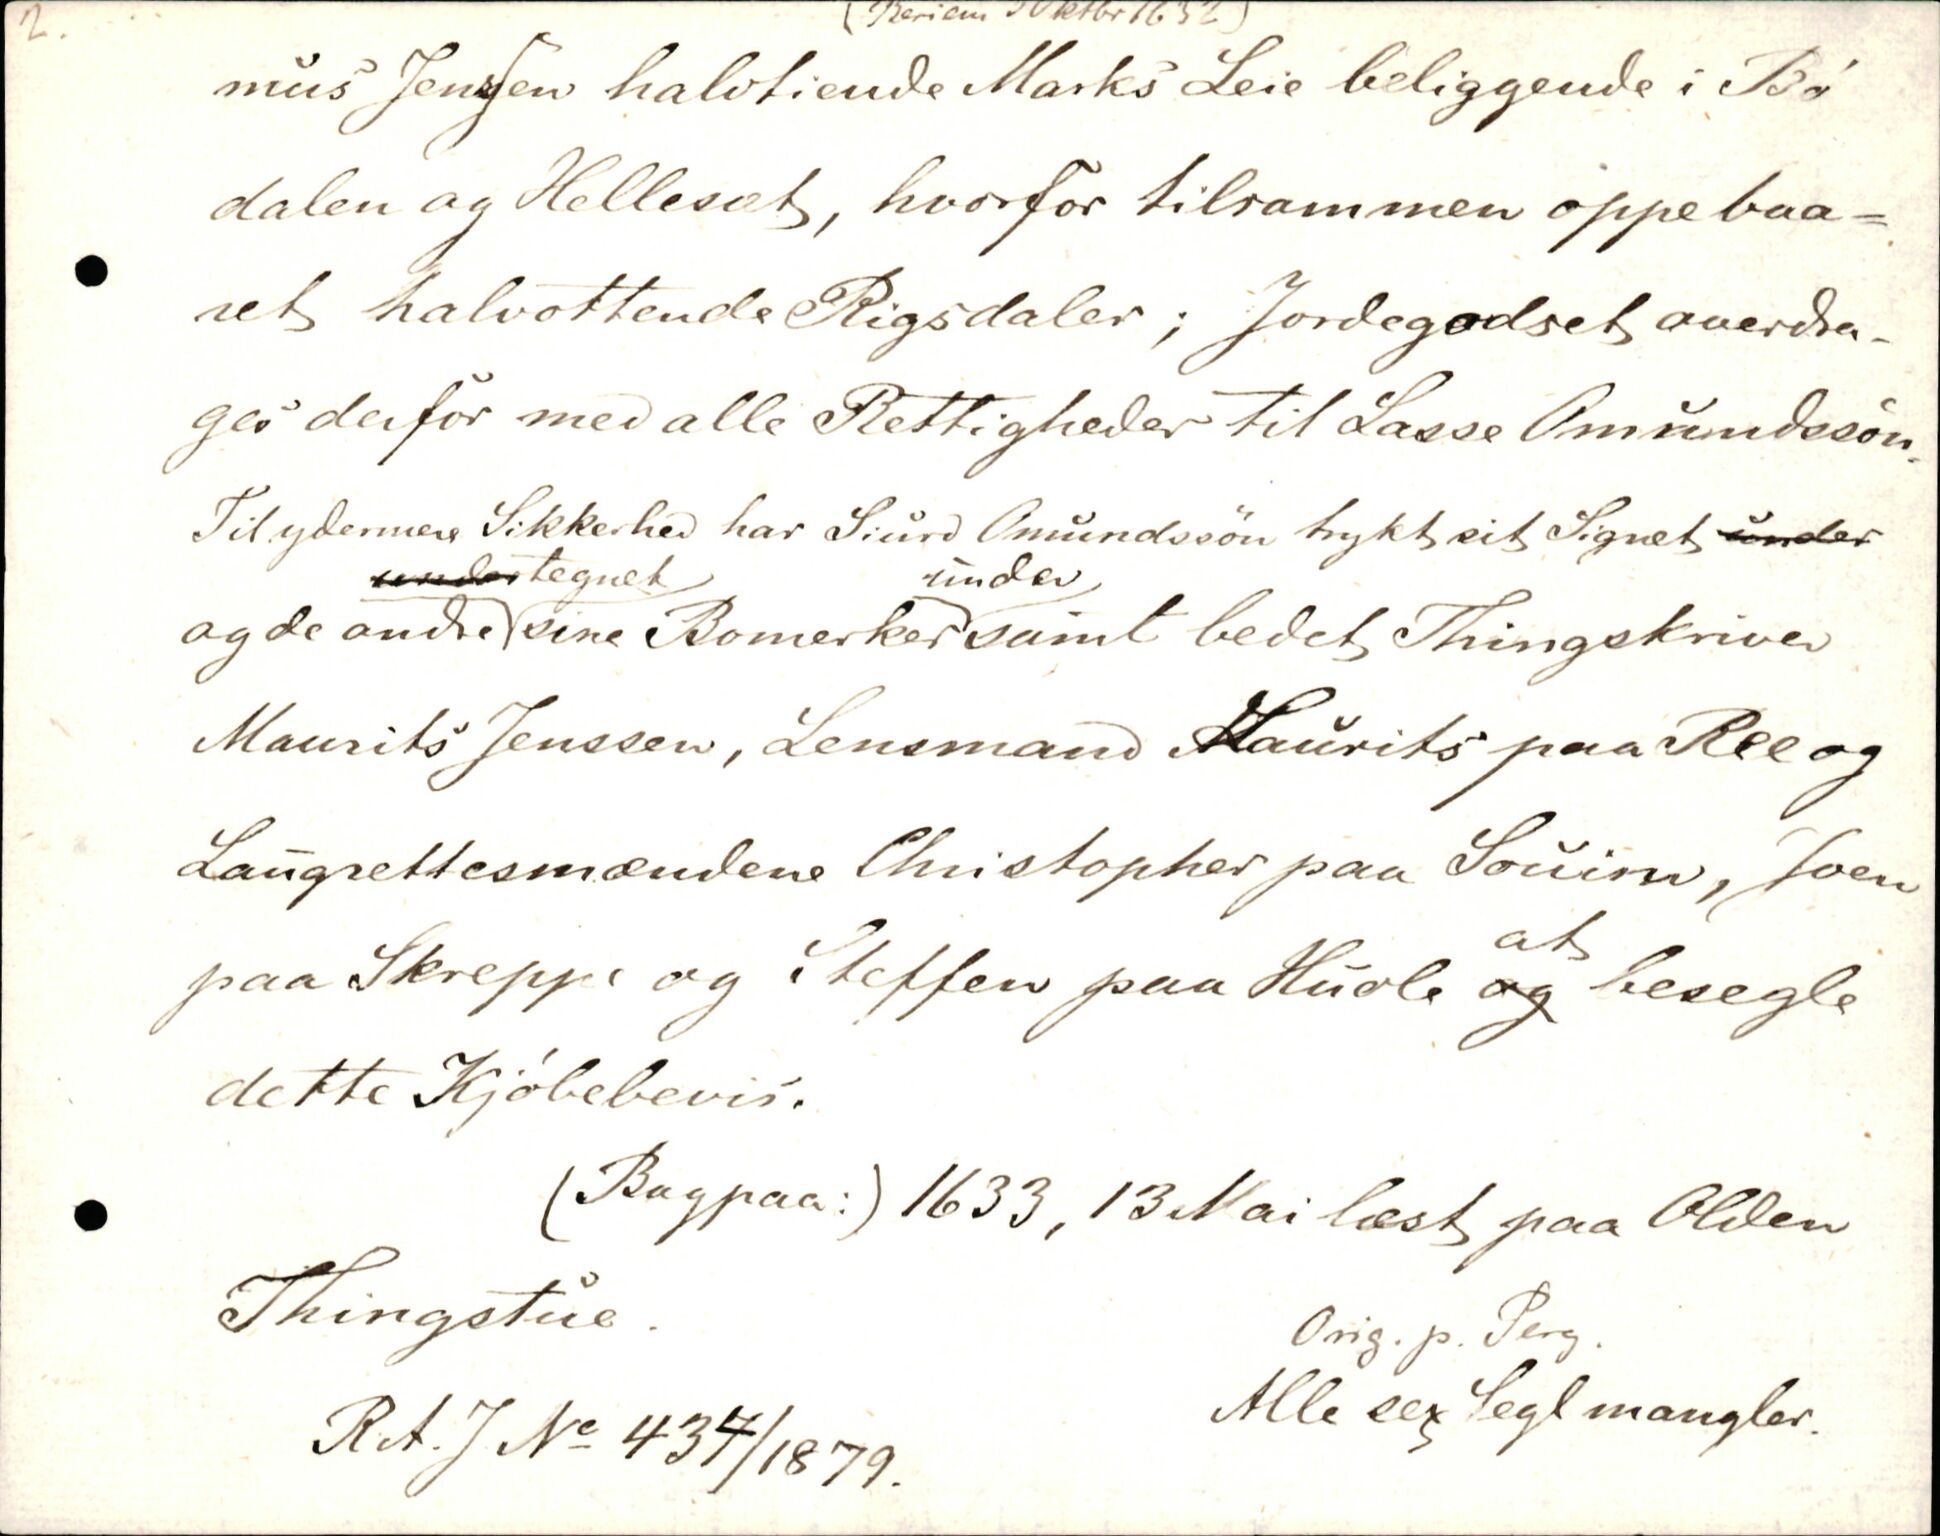 2.
( Oktbr 1632)
mus Jenssen halvtiende Marks Leie beliggende i Bö
dalen og Hellesæt, hvorfor tilsammen oppebaa=
ret halvottende Rigsdaler; Jordegodset overdra-
ges derfor med alle Rettigheder til Lasse Omundssön.
Til ydermere Sikkerhed har Siurd Omundssön trykt sit Signet under
undertegnet under
og de andre sine Bomerker samt bedet Thingskriver
Maurits Jenssen, Lensmand Laurits paa Ree og
Laugrettesmændene Christopher paa Souirn, Joen
paa Skreppe og Steffen paa Huole og at besegle
dette Kjöbebevis.
(Bagpaa:) 1633, 13 Mai læst paa Olden
Thingstue.
Orig. p. Perg.
Alle sex Segl mangler.
R.A. J No 434/1879.